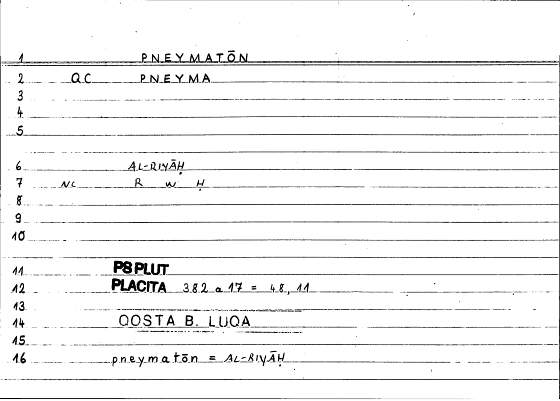 1 PNEYMATŌN
2 QC PNEYMA
3
4
5
6 AL-RIYĀḤ
7 NC R W Ḥ
8
9
10
11 PS PLUT
12 PLACITA 382 a 17 = 48, 11
13
14 QOSTA B. LUQA
15
16 pneymatōn = AL-RIYĀḤ